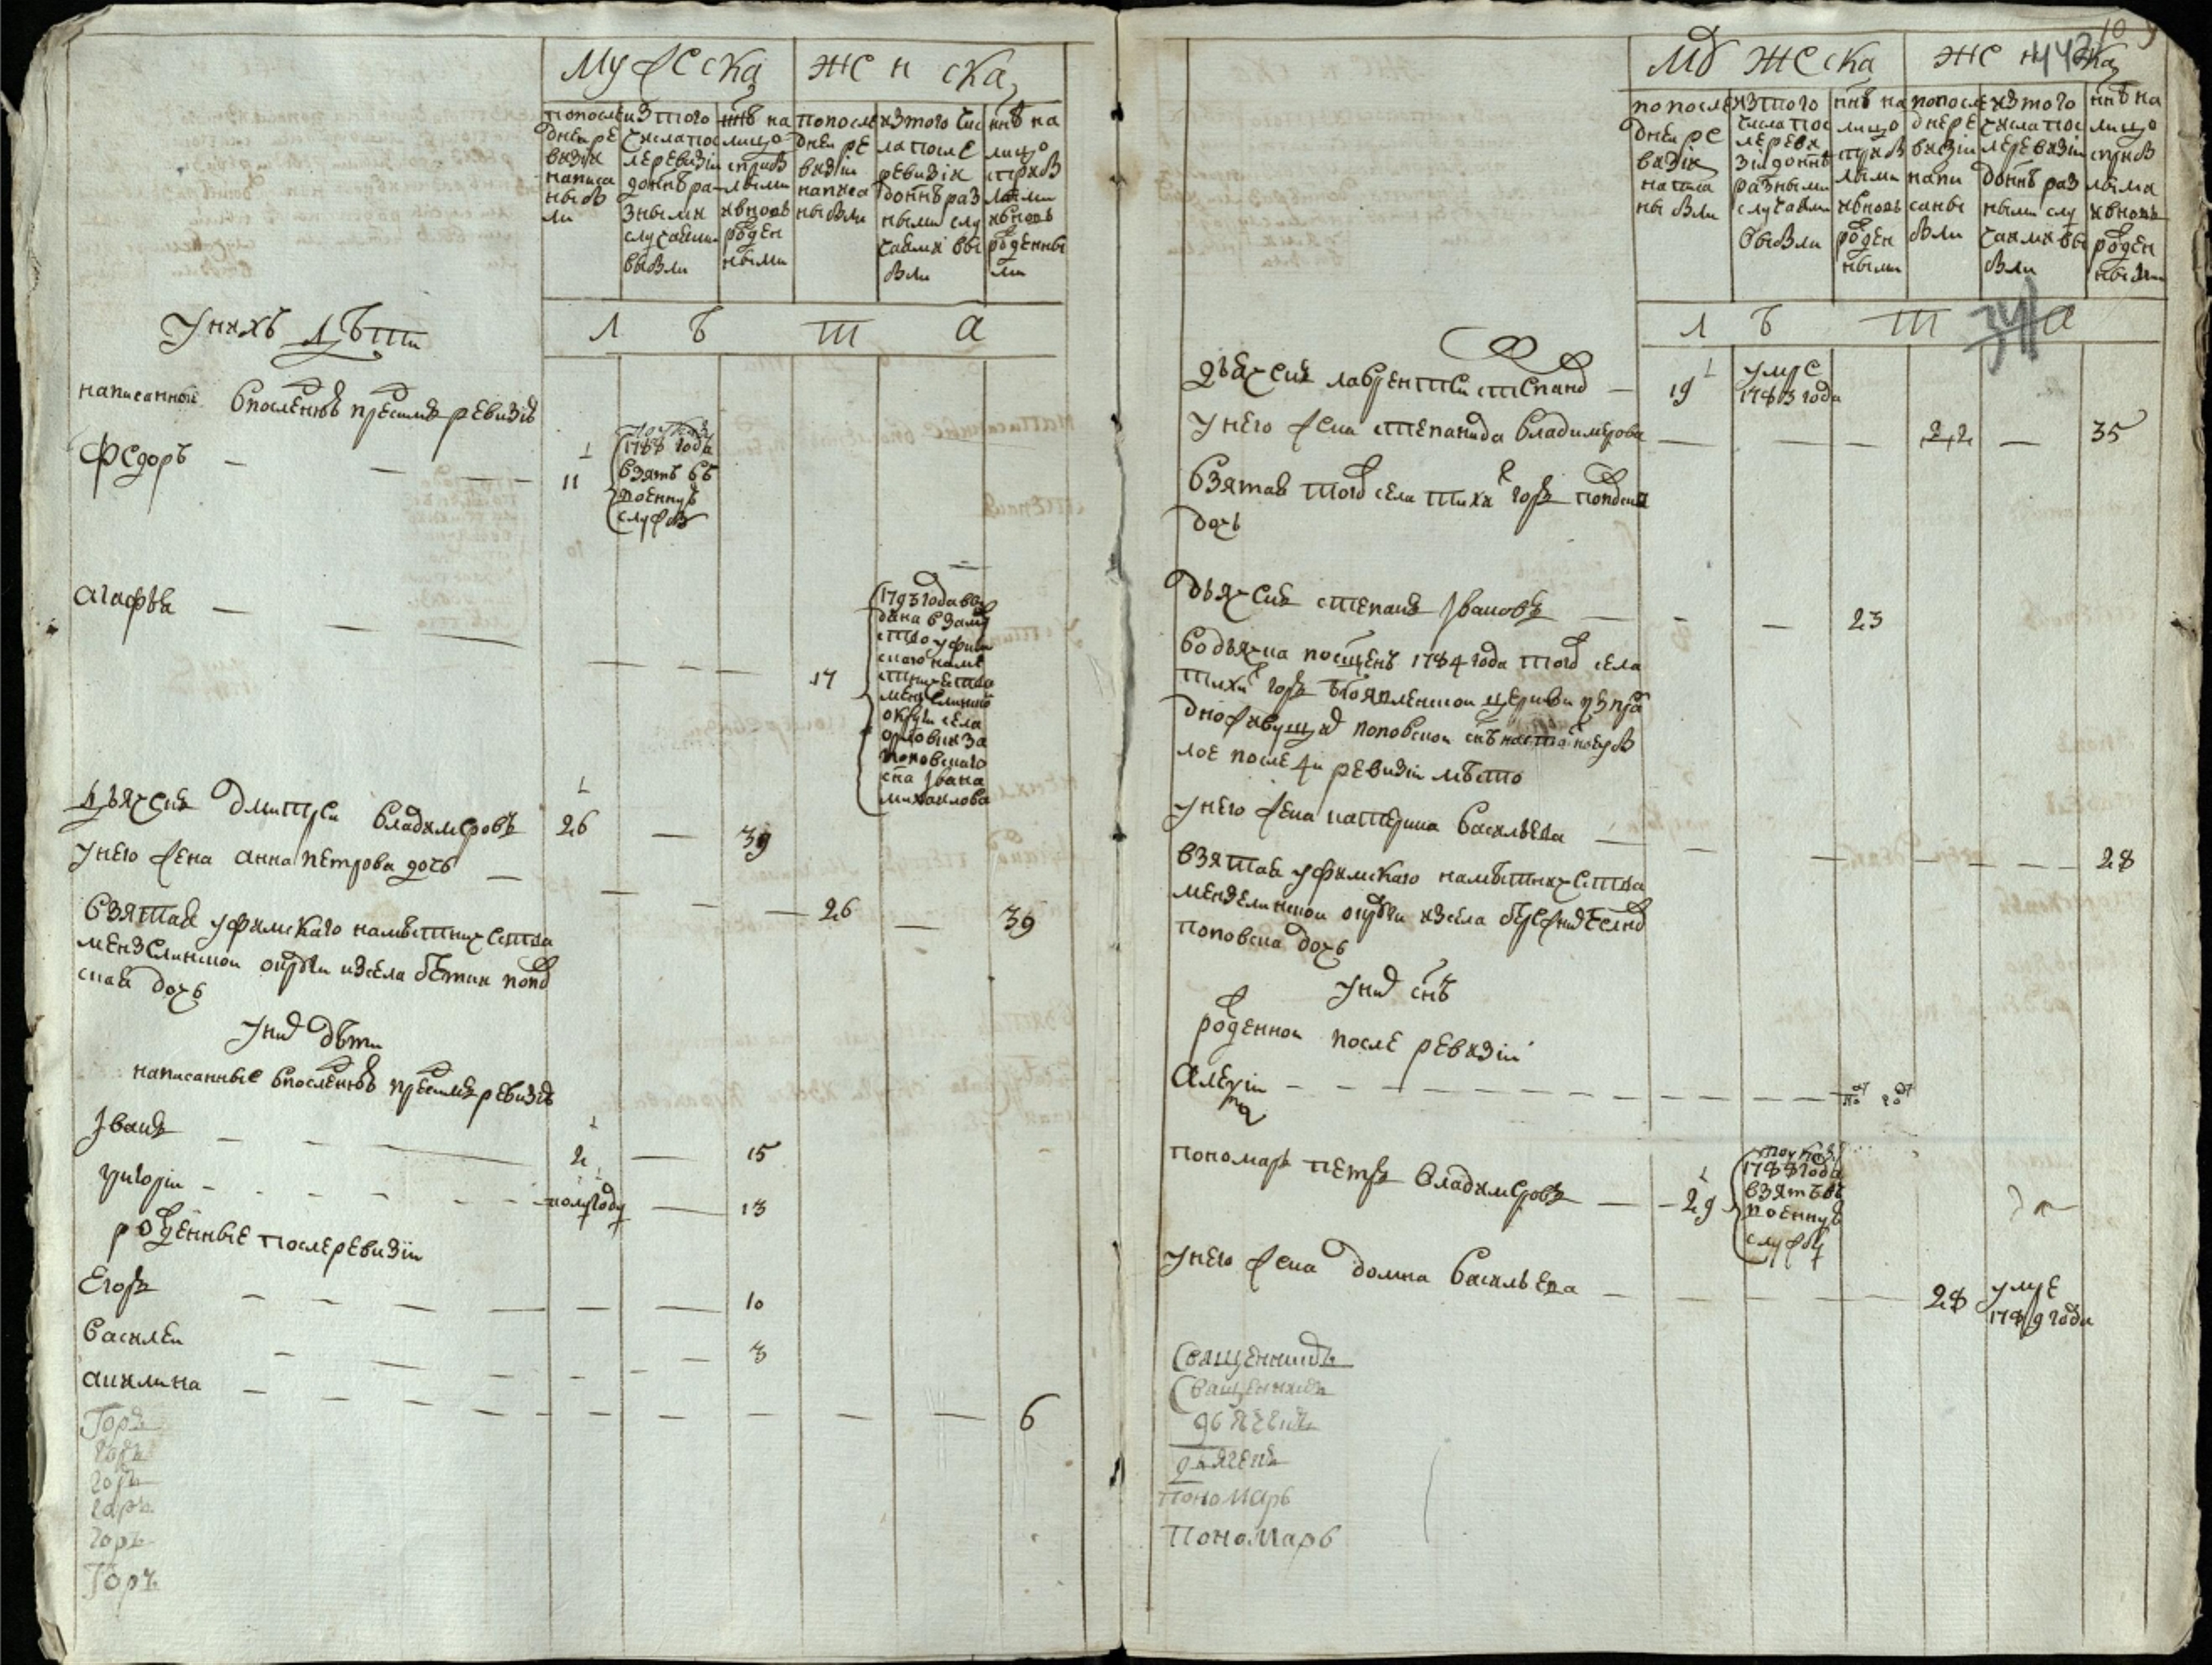 Мужеска
женска
попосле
дней ре
визiи
написа
ны бы
ли
изтого
числа пос
ле ревизiи
донне ра
зными
случаями
выбыли
нне на
лицо
с прибы
лыми
и вновь
рожден
ными
попосле
дней ре
визiи
написа
ны были
изтого чис
ла после
ревизiи
донне раз
ными слу
чаями вы
были
нне на
лицо
с прибы
лыми
и вновь
рожденны
ми
Л Ѣ Т А
У нихъ дѣти
написанные в последней пред сим ревизiи
Федоръ 11
1788 года
взятъ въ
военную
службу
Агафья 17
1793 года вы
дана в заму
ство уфим
скаго намѣ
стничества
мензелинской
округи села
поповскаго
сна Ивана
михаилова
Дьячекъ Дмитрей Владимеровъ 26 — 39
У него жена Анна Петрова дочь 26 — 39
взятая уфимскаго намѣстничества
мензелинской округи изсела бѣтки попов
ская дочь
У них дѣти
написанные в последней пред сим ревизiи
Иванъ 2 — 15
Григорiи полугоду — 13
рожденные после ревизiи
Егоръ 10
Василеи 3
Акилина 6
Горъ
Горъ
Горъ
Горъ
Горъ
Горъ
10
443
Мужеска
женска
попосле
дней ре
визiи
написа
ны были
изтого
числа пос
ле реви
зiи донне
разными
случаями
выбыли
нне на
лицо
с прибы
лыми
и вновь
рожден
ными
попосле
дней ре
визiи
напи
саны
были
изтого
числа пос
ле ревизiи
донне раз
ными слу
чаями вы
были
нне на
лицо
с прибы
лыми
и вновь
рожден
ными
Л Ѣ Т А
Дьячекъ Лаврентеи Степанов — 19 умре
1783 года
У него жена Степанида Владимерова 22 — 35
взятая того села тихих горъ поповская
дочь
Дьячекъ Степанъ Ивановъ 23
во дьячка посщенъ 1784 года того села
тихих горъ Бгоявленской церкви из пра
дно живущих поповской снъ на
лое после 4и ревизiи мѣсто
У него жена Катерина Васильева 28
взятая уфимскаго намѣстничества
мензелинской округи изсела
поповска дочь
У них снъ
рожденной после ревизiи
Алексiи
Пономарь Петръ Владимеровъ — 29
1788 года
взятъ въ
военную
службу
У него жена Домна Васильева 28 умре
1789 года
Священникъ
Священникъ
дьяченъ
дьяченъ
Пономарь
Пономарь